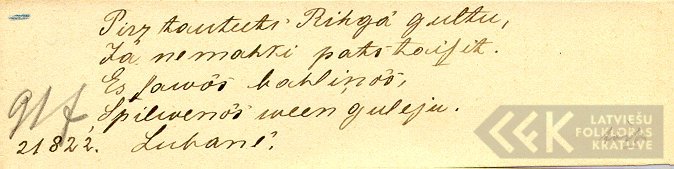 Pirz tauteets Rihgâ gultu,
Jâ nemahki pats taisit.
Es sawôs bahliņôs,
Spilwenôs ween guleju.
917,
21822. Lubanê.
LATVIEŠU
FOLKLORAS
KRĀTUVE